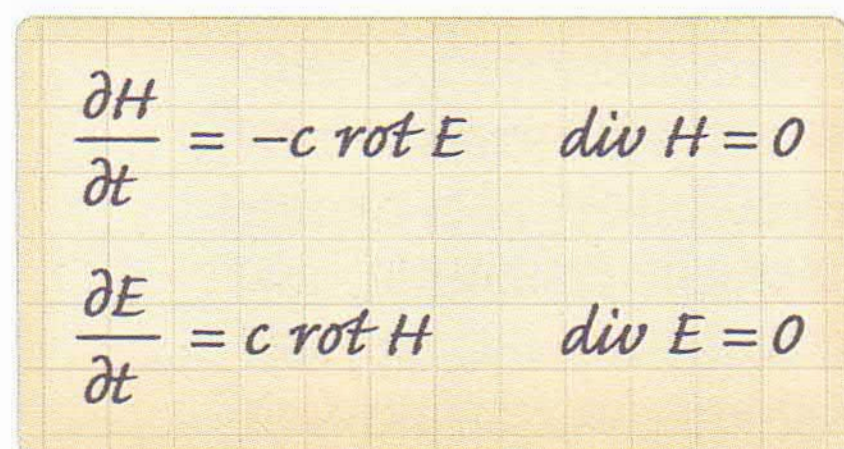 ∂H/∂t = −c rot E div H = 0
∂E/∂t = c rot H div E = 0